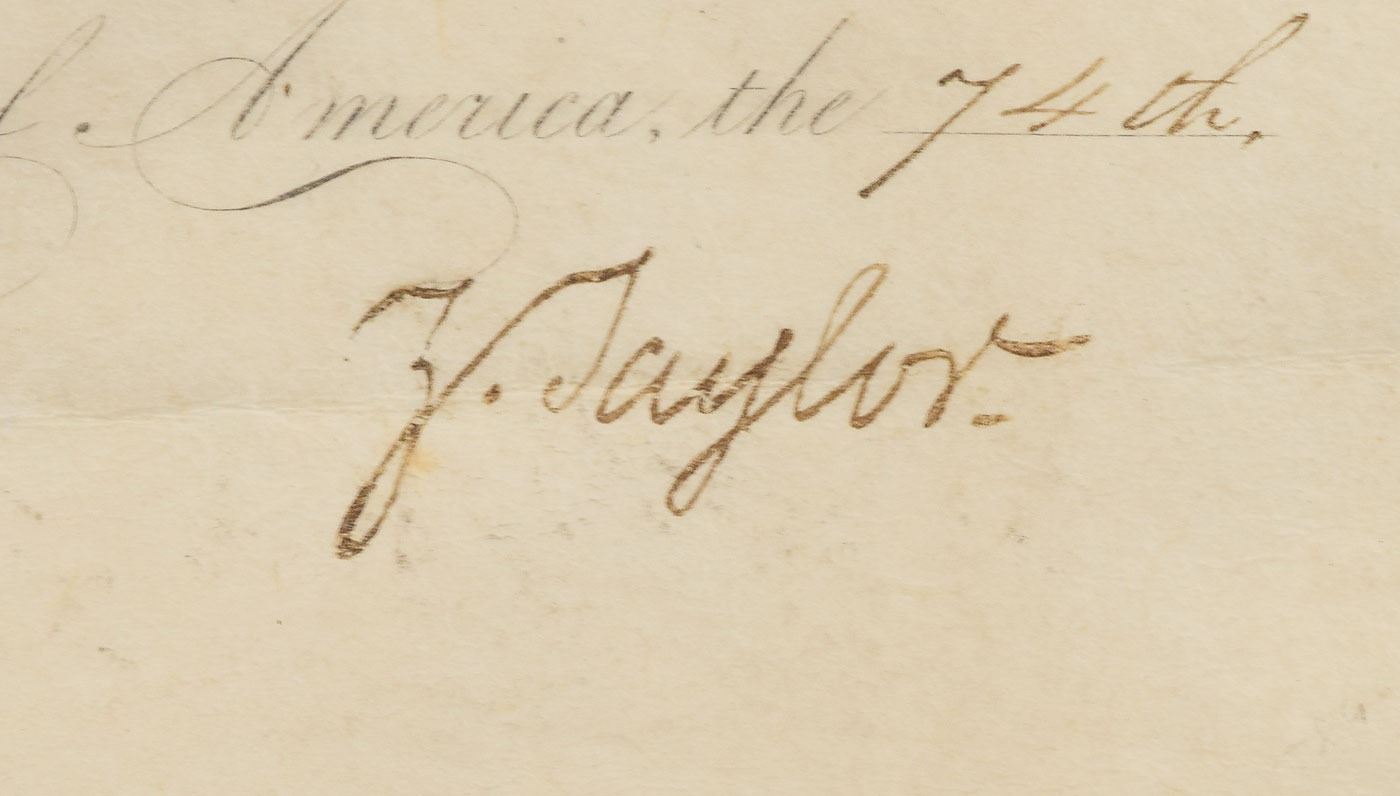 l. America, the 74th.
Z. Taylor.